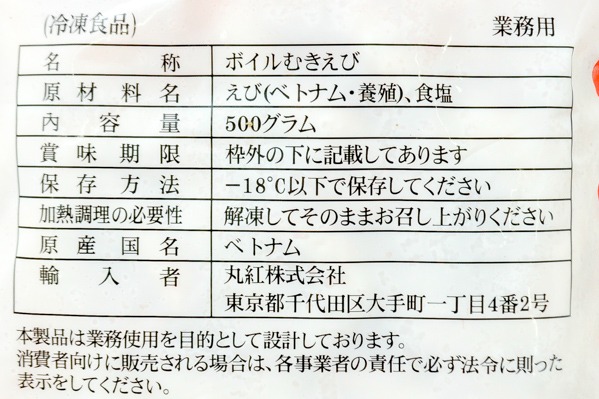 (冷凍食品) 業務用
名称 ボイルむきえび
原材料名 えび(ベトナム・養殖)、食塩
内容量 500グラム
賞味期限 枠外の下に記載してあります
保存方法 −18℃以下で保存してください
加熱調理の必要性 解凍してそのままお召し上がりください
原産国名 ベトナム
輸入者 丸紅株式会社
東京都千代田区大手町一丁目4番2号
本製品は業務使用を目的として設計しております。
消費者向けに販売される場合は、各事業者の責任で必ず法令に則った
表示をしてください。